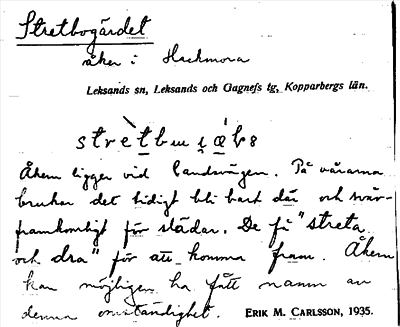 Stretbogärdet
åker i Hackmora
Leksands sn, Leksands och Gagnefs tg, Kopparbergs län.
Åkern ligger vid landsvägen. På vårarna
brukar det tidigt bli bart där och svår-
framkomligt för slädar. De få "streta
och dra" för att komma fram. Åkern
kan möjligen ha fått namn av
denna omständighet. ERIK M. CARLSSON, 1935.